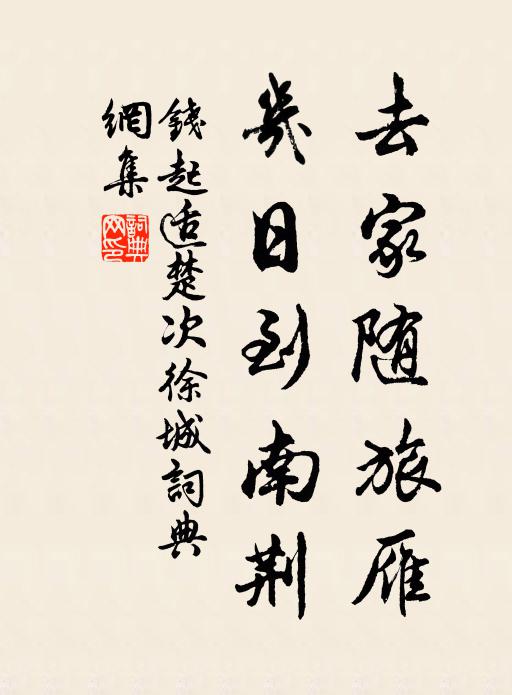 去家随旅雁
幾日到南荆
錢起适楚次徐城詞典
網集
詞典網印